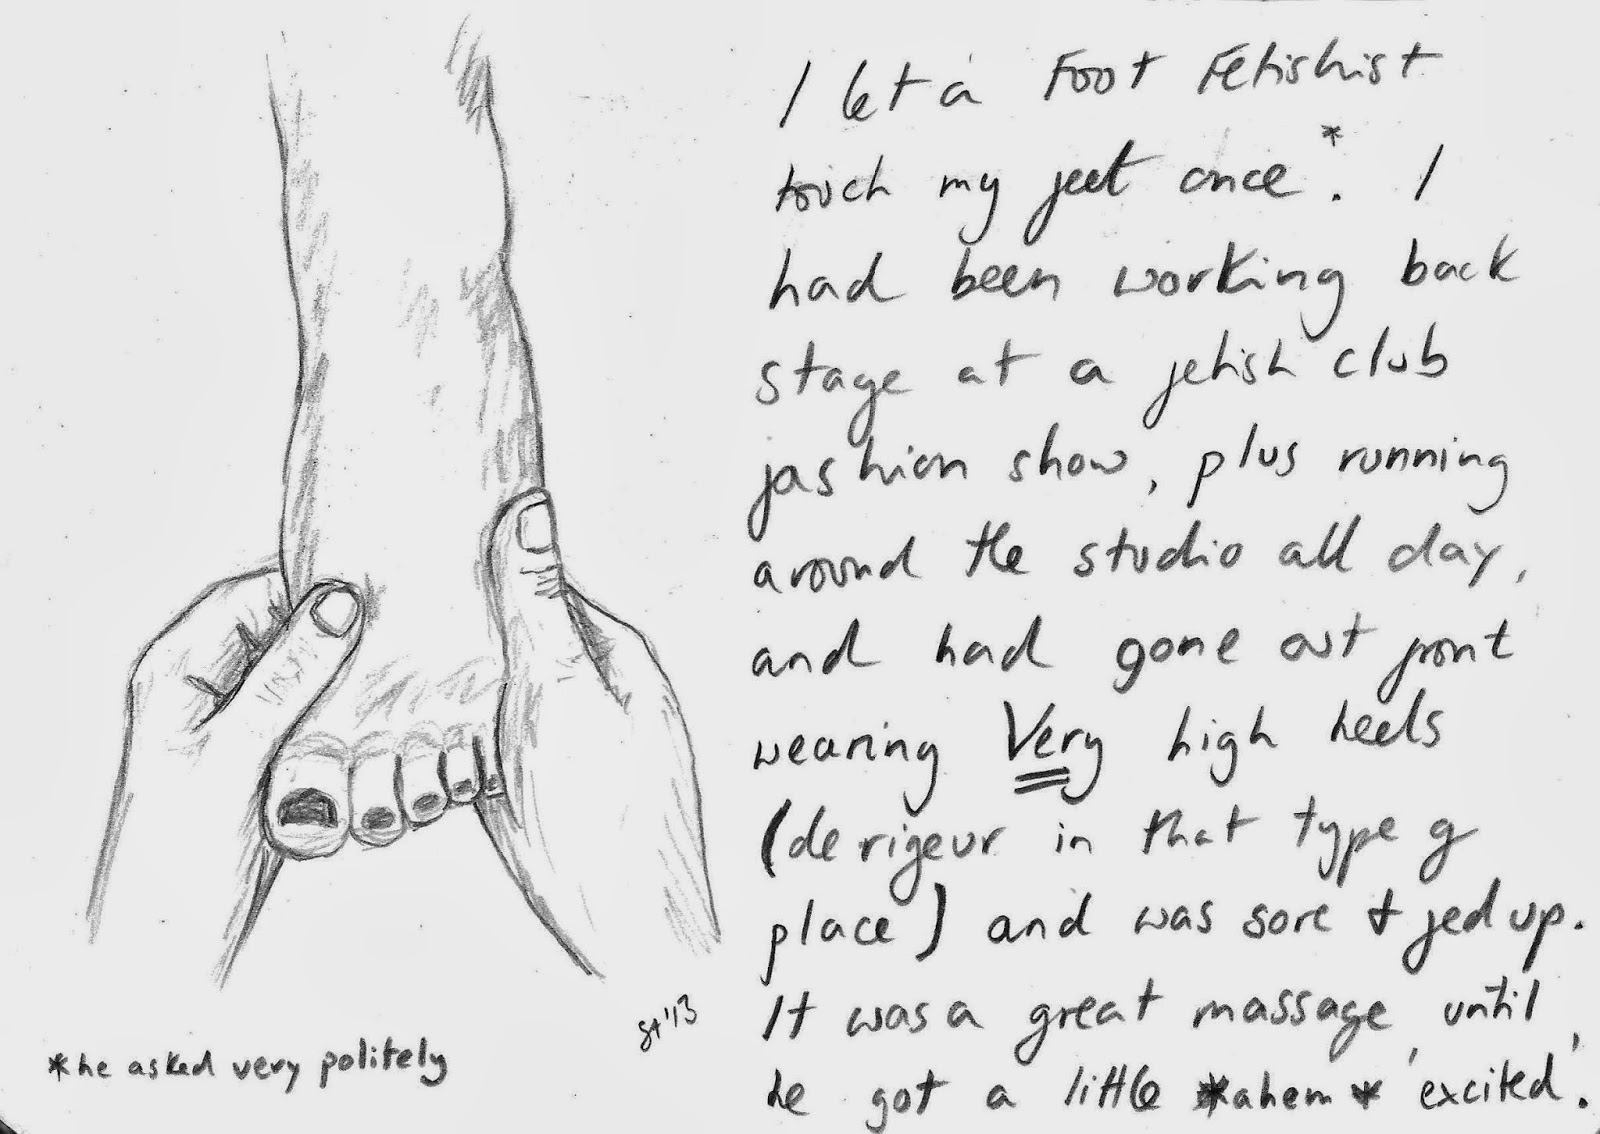 I let a Foot Fetishist
touch my feet once*. I
had been working back
stage at a fetish club
fashion show, plus running
around the studio all day,
and had gone out front
wearing Very high heels
(de rigeur in that type of
place) and was sore & fed up.
It was a great massage until
he got a little *ahem* 'excited'.
*he asked very politely
St '13